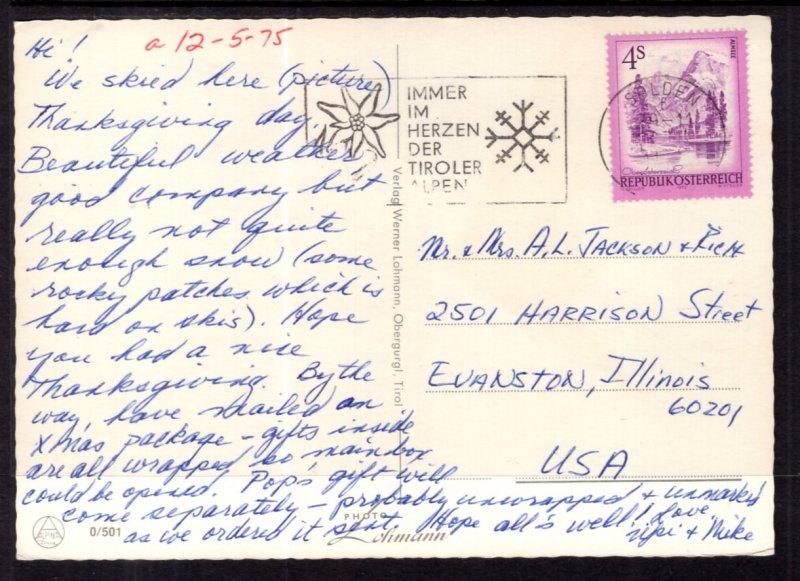 a 12-5-75
Hi!
We skied here (picture)
Thanksgiving day.
Beautiful weather,
good company but
really not quite
enough snow (some
rocky patches which is
hard on skis). Hope
you had a nice
Thanksgiving. By the
way, have mailed an
Xmas package - gifts inside
are all wrapped so main box
could be opened. Pop's gift will
come separately - probably unwrapped & unmarked
as we ordered it sent. Hope all's well! Love,
& Mike
IMMER
IM
HERZEN
DER
TIROLER
ALPEN
4S
ALMSEE
REPUBLIK ÖSTERREICH
Mr. & Mrs. A.L. Jackson & Rich
2501 Harrison Street
Evanston, Illinois
60201
USA
Verlag Werner Lohmann, Obergurgl, Tirol
0/501
PHOTO
Lohmann